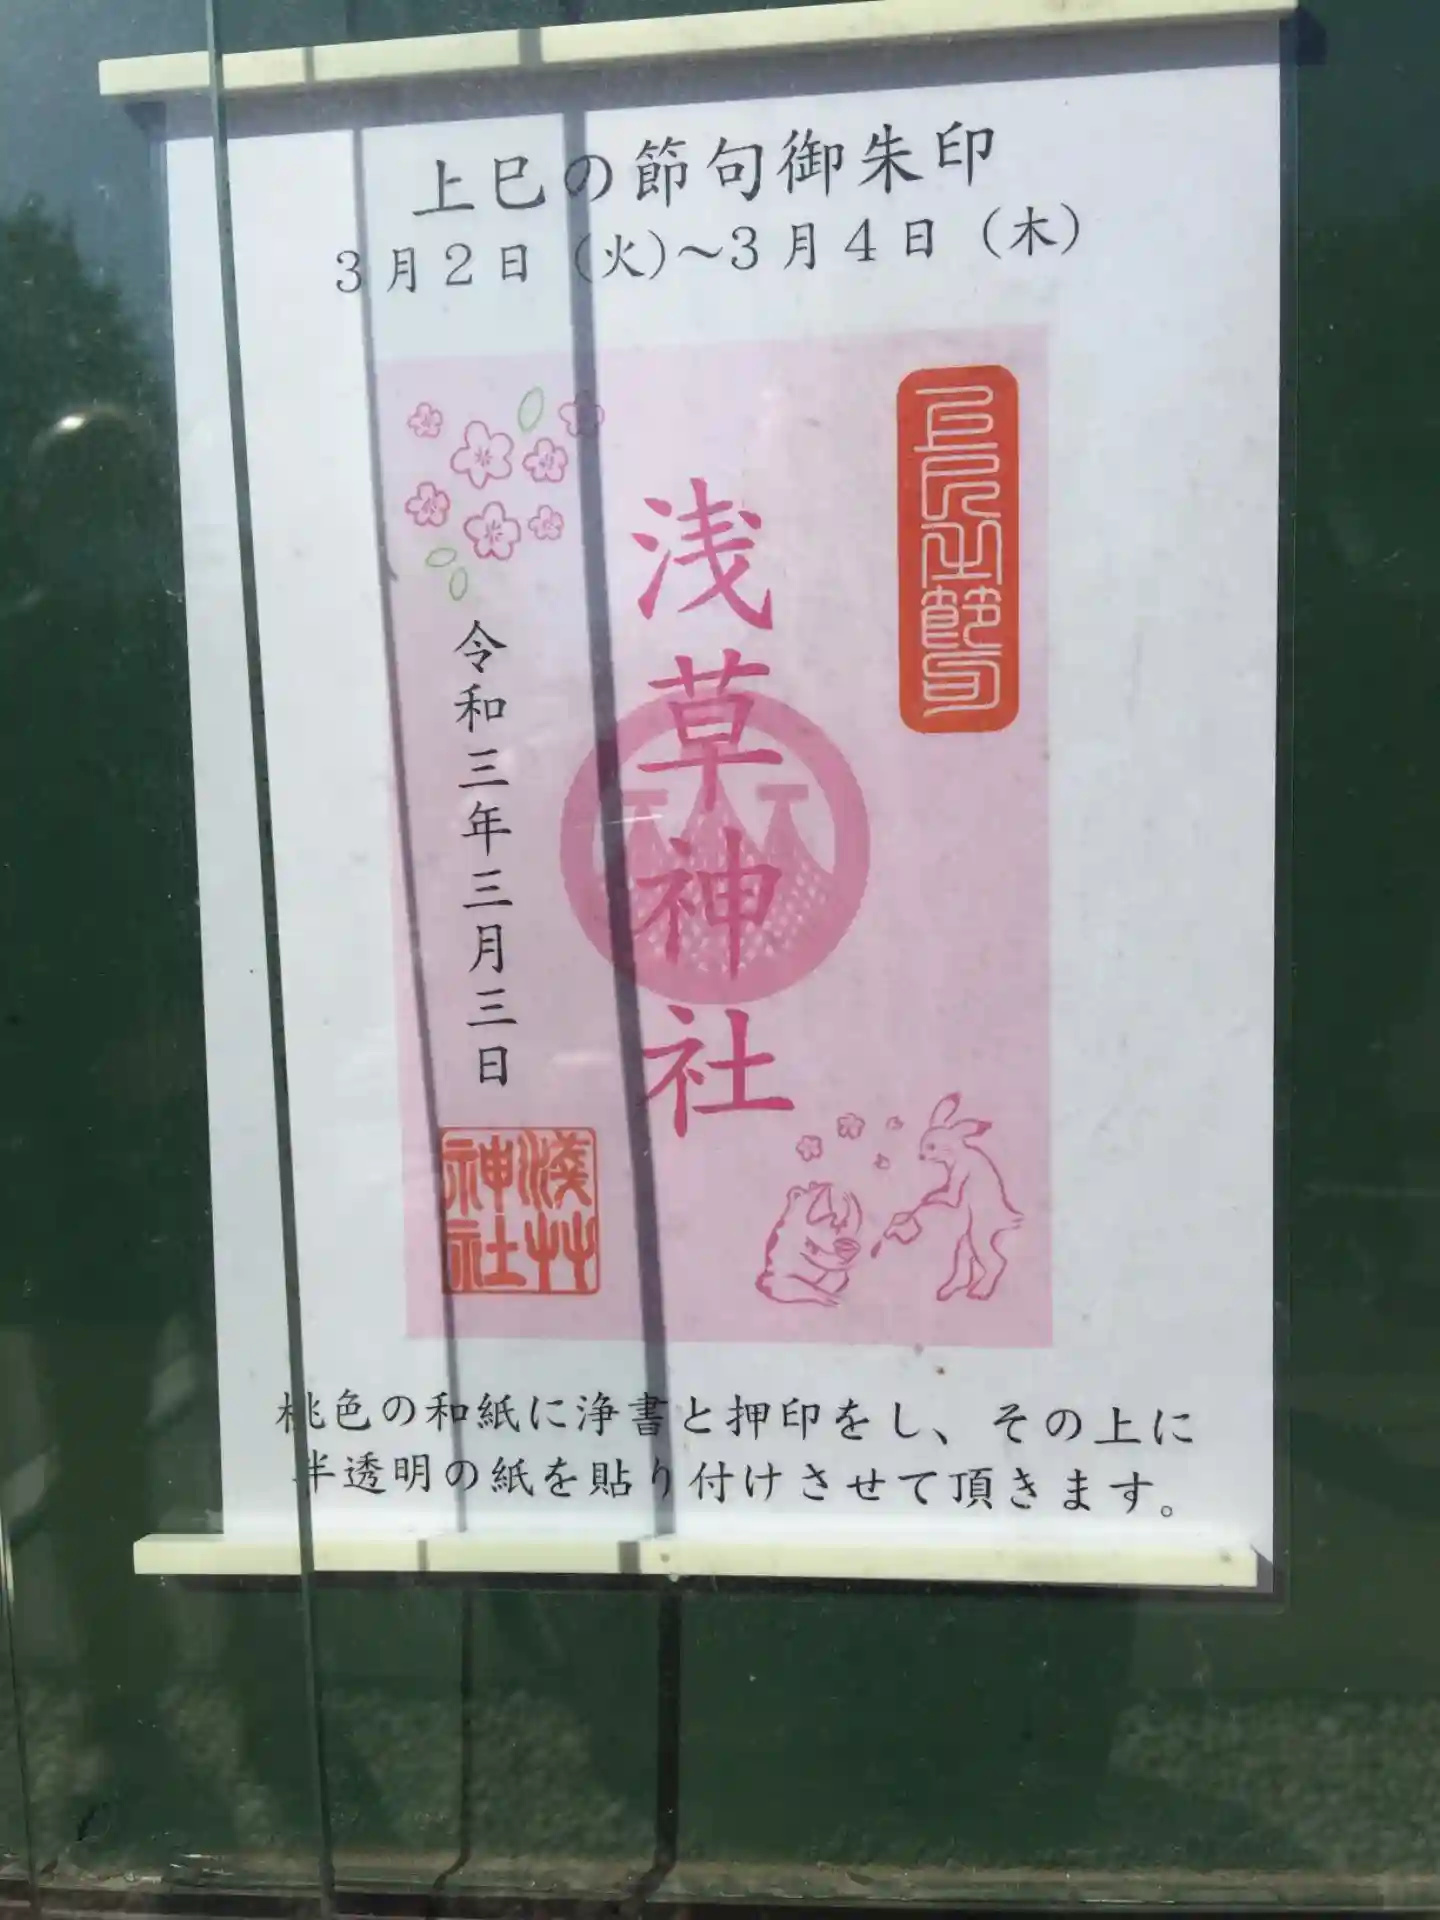 上巳の節句御朱印
3月2日（火）～3月4日（木）
上巳之節句
浅草神社
令和三年三月三日
淺草神社
桃色の和紙に浄書と押印をし、その上に
半透明の紙を貼り付けさせて頂きます。